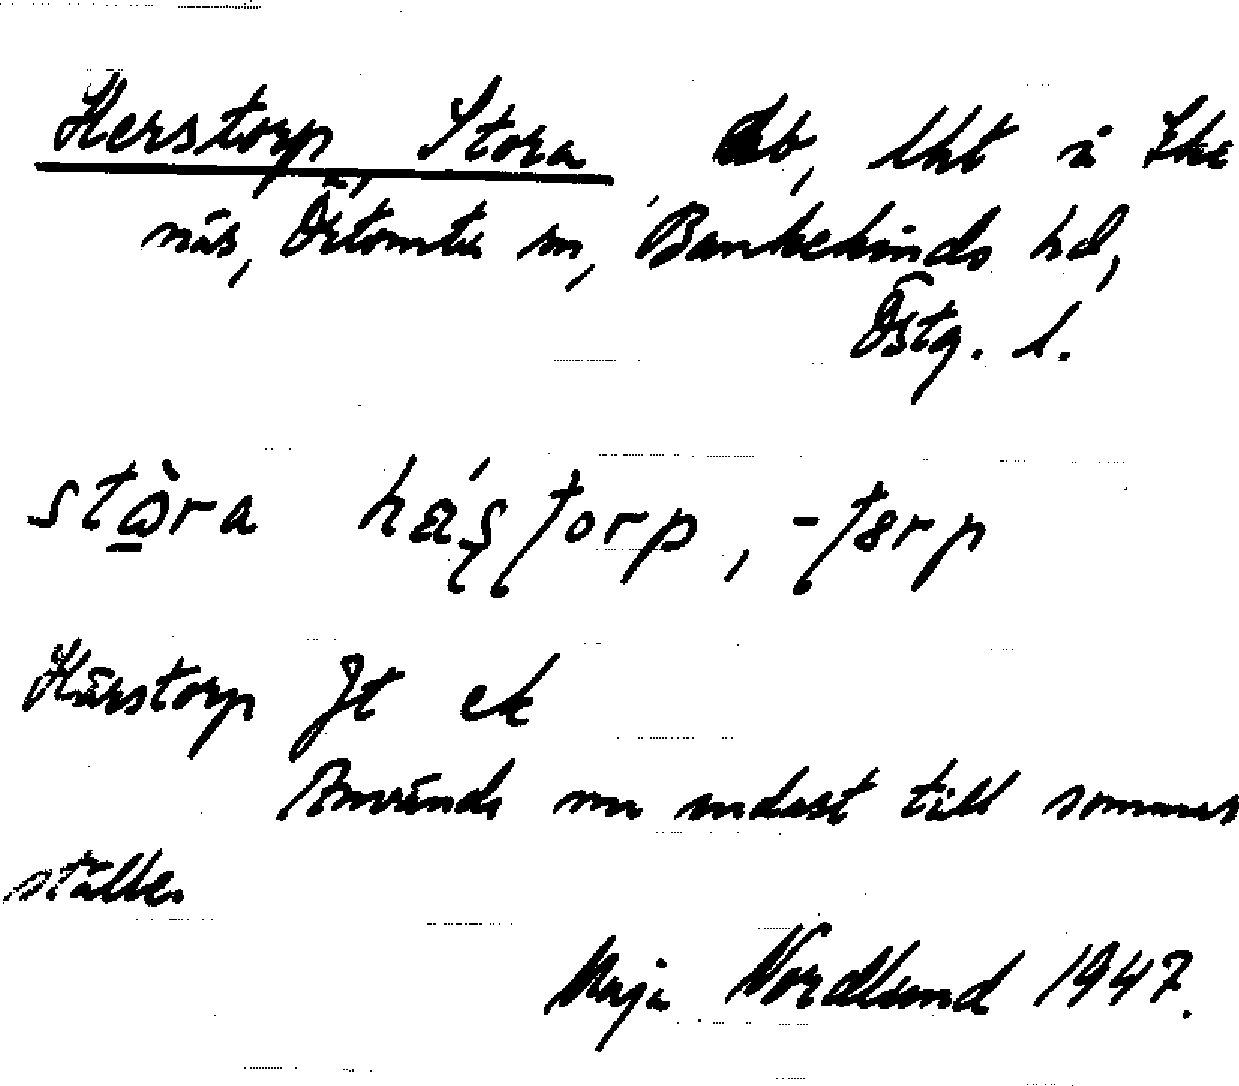 Herstorp, Stora db, lht i Eke
näs, Örtomta sn, Bankekinds hd,
Östg. l.
stωra háʂtorp, -tɵrp
Härstorp Jt ek
Används nu endast till sommar
ställe.
Maja Nordlund 1947.